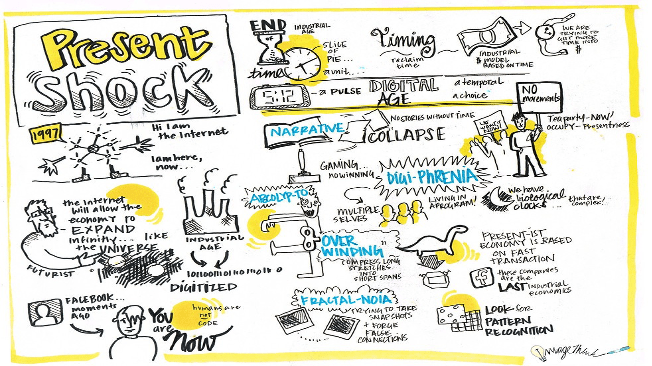 Present
Shock
END
INDUSTRIAL
AGE
time
SLICE
OF
PIE...
Timing
reclaim
time
INDUSTRIAL
& MODEL
BASED ON TIME
WE ARE
TRYING TO
GET MORE
TIME INTO
$
5:12
a PULSE
DIGITAL
AGE
a temporal
a choice
NO
movements
Teaparty-Now/
OCCUPY-Presentness
NARRATIVE
COLLAPSE
NO STORIES WITHOUT TIME
1997
Hi I am
the Internet
I am here,
now...
the Internet
will allow the
economy to
EXPAND
infinitly... LIKE
the UNIVERSE
FUTURIST
INDUSTRIAL
AGE
DIGITIZED
FACEBOOK...
moments
AGO
You
are
Now
humans are
not
CODE
GAMING...
no winning
DIGI-PHRENIA
MULTIPLE
SELVES
LIVING IN
A PROGRAM!
We have
biological
clocks...
that are
complex!
OVER
WINDING
COMPRESS LONG
STRETCHES
INTO
SHORT SPANS
PRESENT-IST
ECONOMY IS BASED
ON FAST
TRANSACTION
these companies
are the
LAST industrial
economies
FRACTAL-NOIA
TRYING TO TAKE
SNAPSHOTS
+ FORGE
FALSE
CONNECTIONS
LOOK for
PATTERN
RECOGNITION
ImageThink